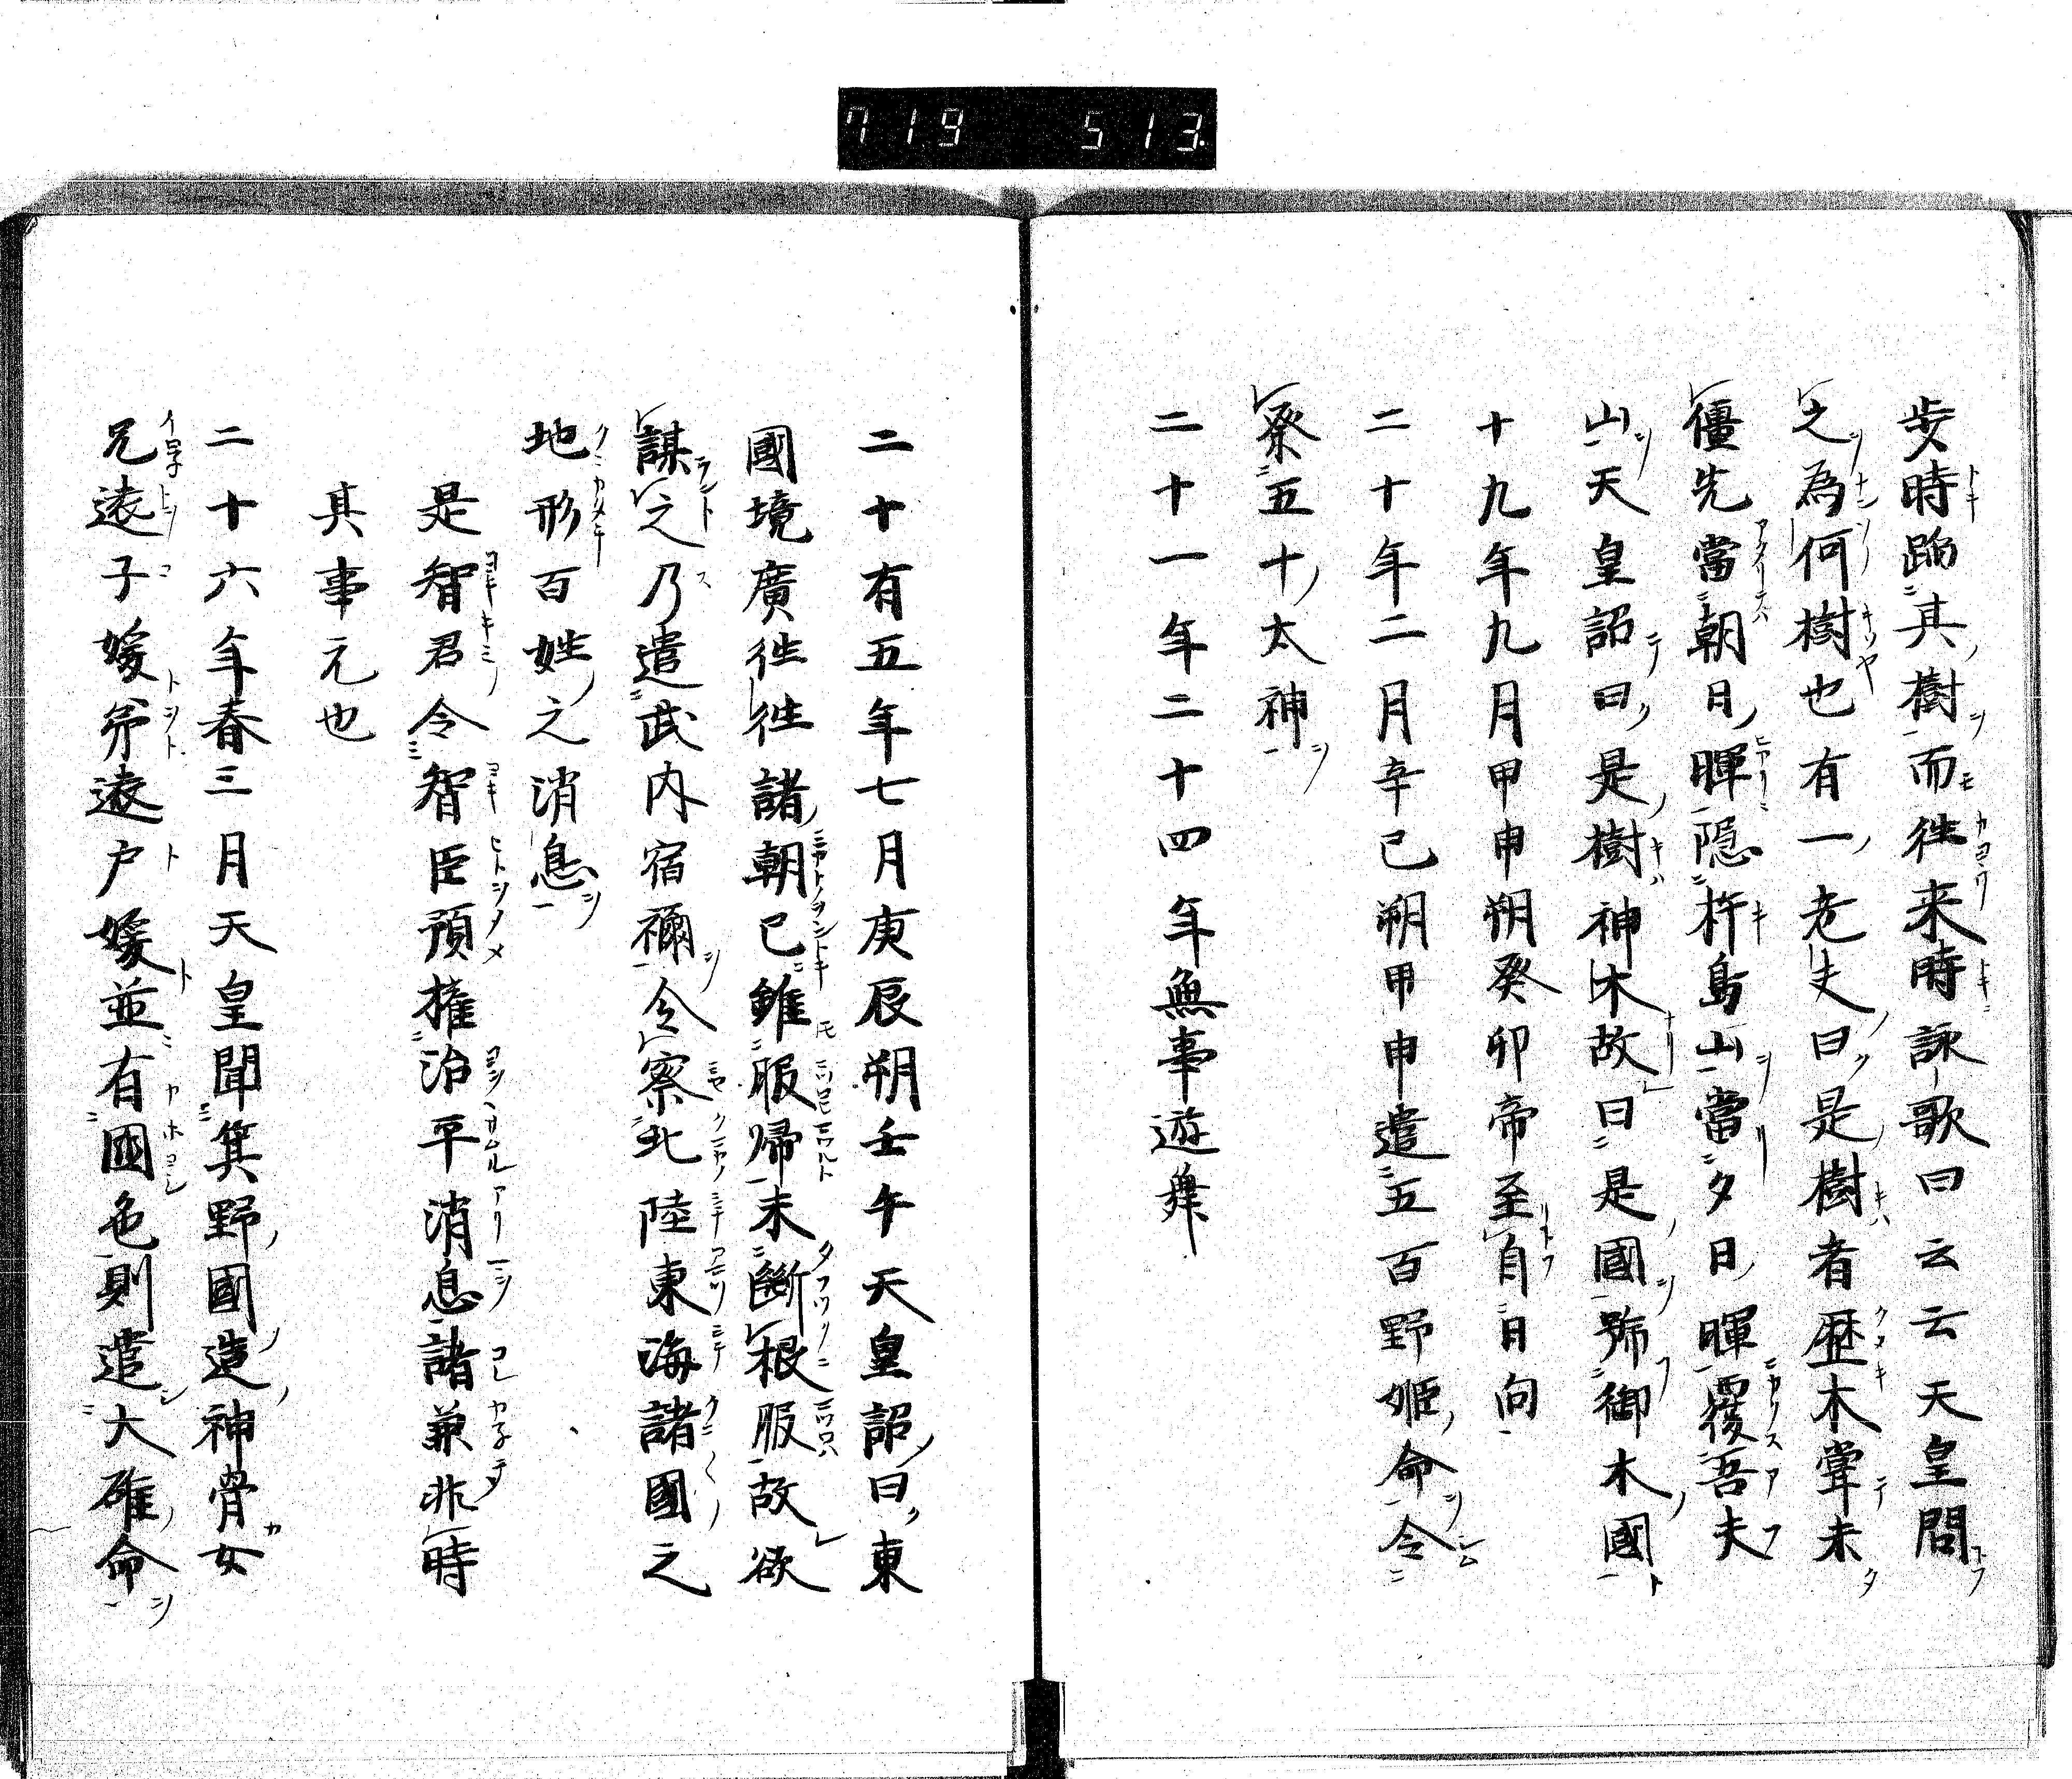 719 513
歩時踏其樹而徃来時詠歌曰云云天皇問
之為何樹也有一老夫曰是樹者歴木甞未
僵先當朝日暉隠杵島山當夕日暉覆吾夫
山天皇詔曰是樹神木故曰是國號御木國
十九年九月甲申朔癸卯帝至自日向
二十年二月辛巳朔甲申遣五百野姫命令
祭五十太神
二十一年二十四年無事遊舞
二十有五年七月庚辰朔壬午天皇詔曰東
國境廣徃徃諸朝已雖服帰未断根服故欲
謀之乃遣武内宿禰令察北陸東海諸國之
地形百姓之消息
是智君令智臣預權治平消息諸兼非時
其事元也
二十六年春三月天皇聞箕野國造神骨女
兄遠子媛弟遠戸媛並有國色則遣大碓命